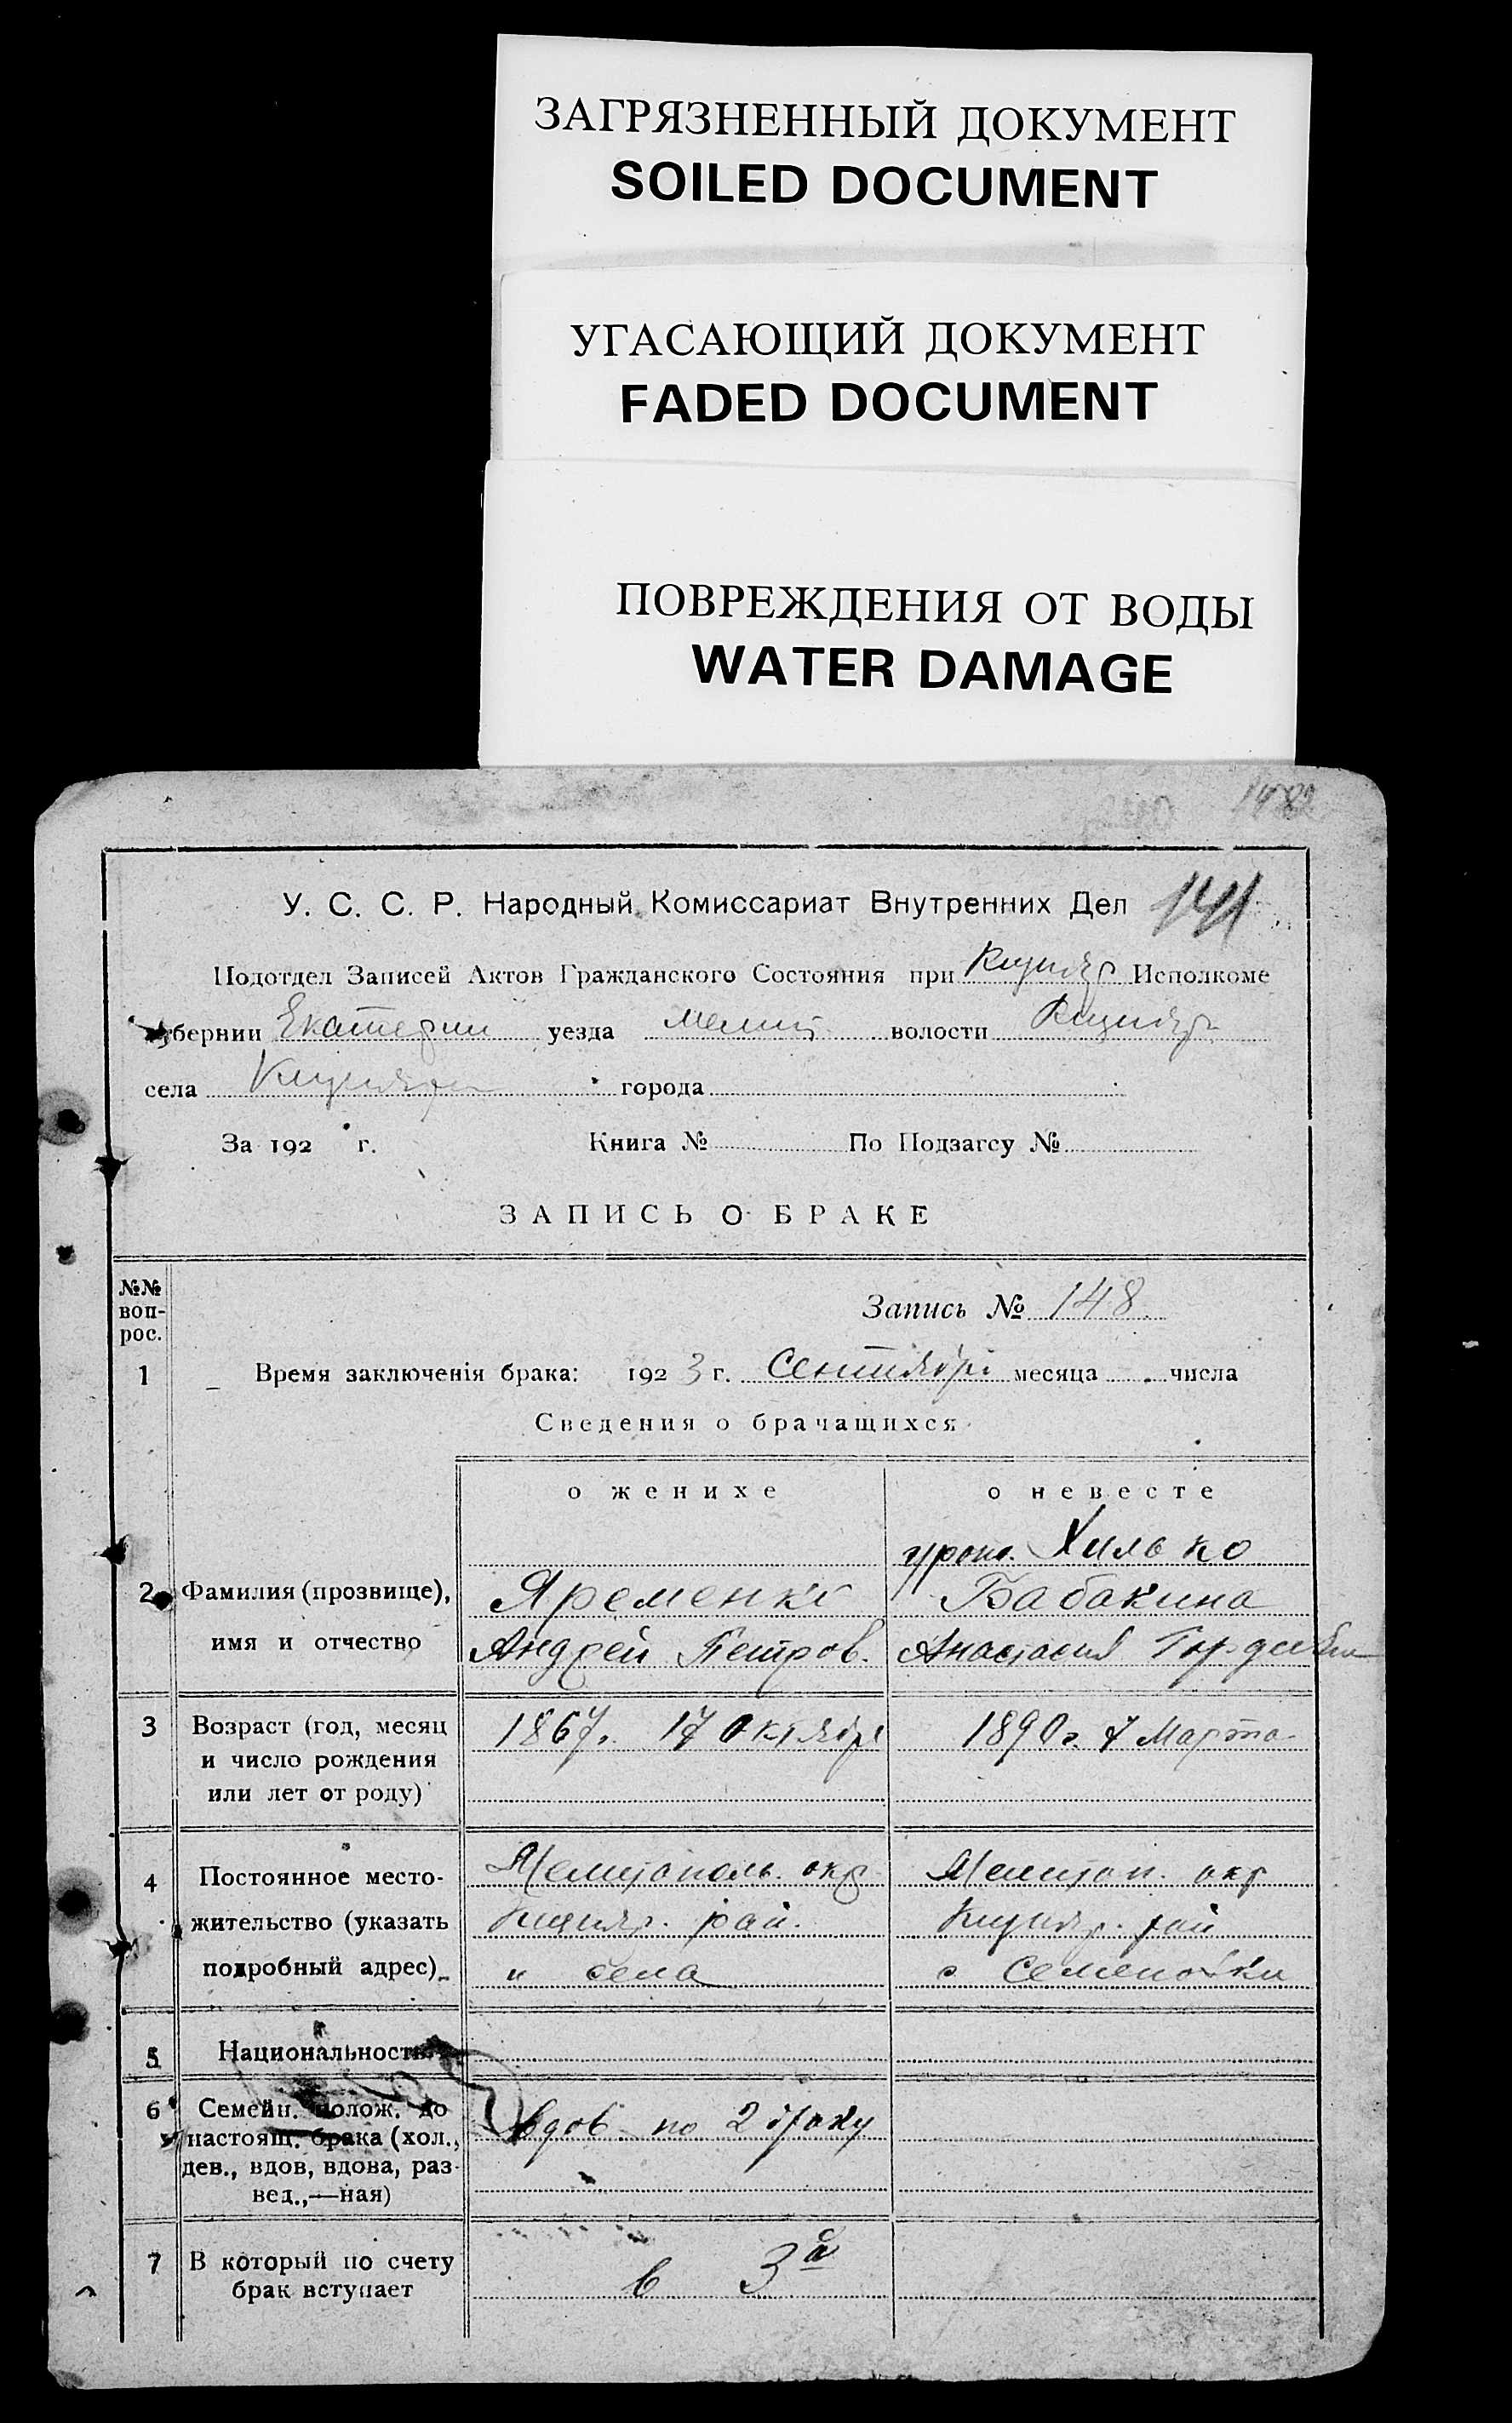 ЗАГРЯЗНЕННЫЙ ДОКУМЕНТ
SOILED DOCUMENT
УГАСАЮЩИЙ ДОКУМЕНТ
FADED DOCUMENT
ПОВРЕЖДЕНИЯ ОТ ВОДЫ
WATER DAMAGE
1482
У. С. С. Р. Народный Комиссариат Внутренних Дел 141
Подотдел Записей Актов Гражданского Состояния при Исполкоме
бернии Екатерин уезда Мелит волости
села города
За 192 г. Книга № По Подзагсу №
ЗАПИСЬ О БРАКЕ
№№ воп-рос.
Запись № 148
1 Время заключенія брака: 1923 г. Сентября месяца числа
Сведения о брачащихся
о женихе о невесте
урож. Хилько
2 Фамилия (прозвище), Яременко Бабакина
имя и отчество Андрей Петров. Анастасия Гордеевн
3 Возраст (год, месяц 1867г. 17 Октября 1890г. 7 Марта
и число рождения
или лет от роду)
4 Постоянное место- Мелитополь. окр Мелитоп. окр
жительство (указать рай. рай
подробный адрес) и села с Семеновки
5 Национальность
6 Семейн. полож. до
настоящ. брака (хол., вдов по 2 браку
дев., вдов, вдова, раз-
вед.,—ная)
7 В который по счету в 3й
брак вступает